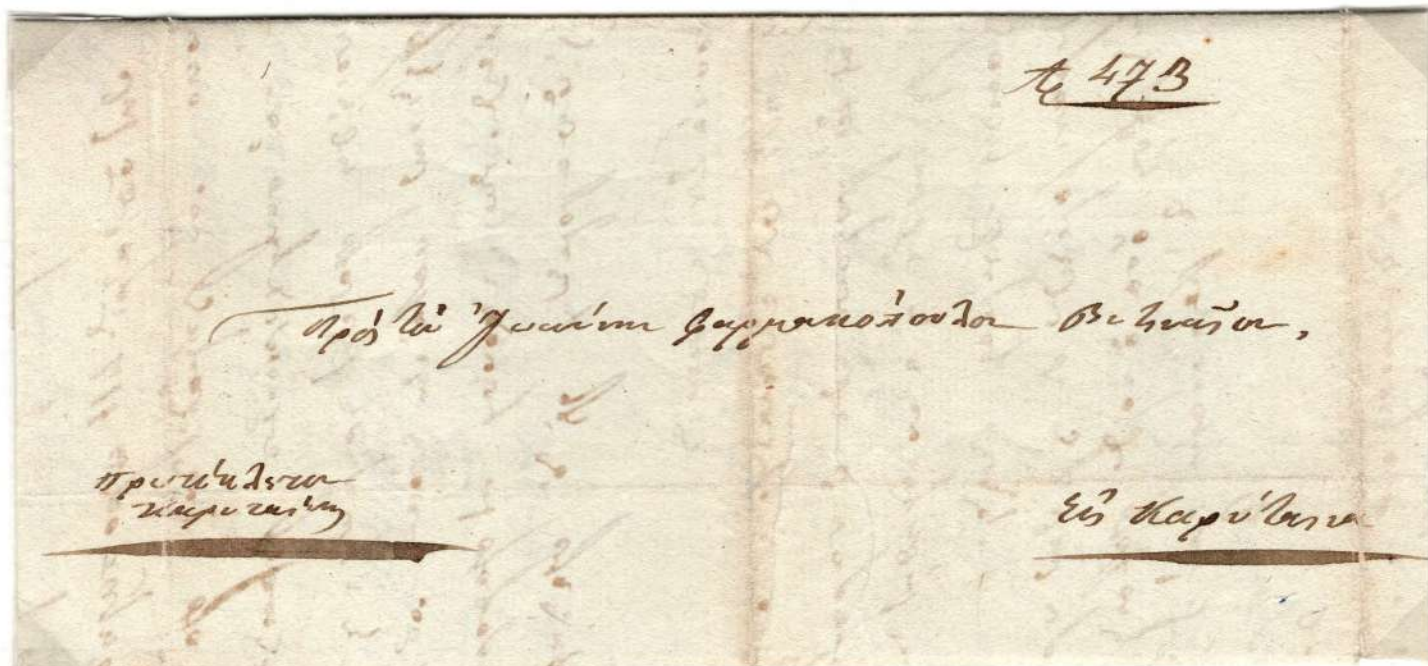 Αρ 473
Πρὸς τὸν Ἰωάννην Φαρμακόπουλον Βυτιναῖον,
Πρωτόκλητον
Καρυταίνης
Εἰς Καρύταιναν